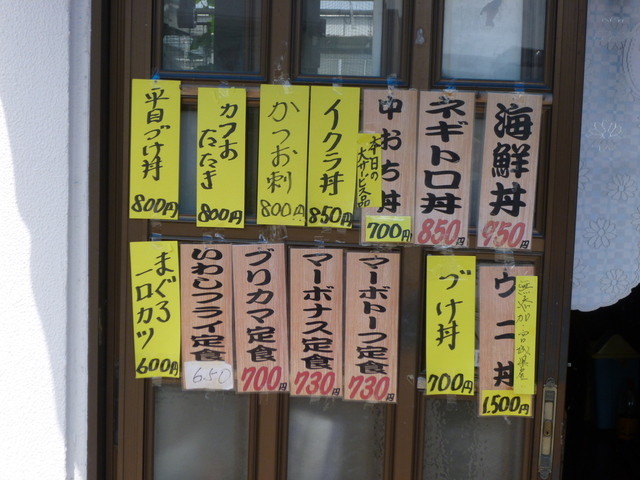 海鮮丼
950円
ネギトロ丼
850円
中おち丼
700円
本日の
大サービス品
イクラ丼
850円
かつお刺
800円
カツオ
たたき
800円
平目づけ丼
800円
ウニ丼
無添加・宮城県産
1.500円
づけ丼
700円
マーボトーフ定食
730円
マーボナス定食
730円
ブリカマ定食
700円
いわしフライ定食
650
まぐろ
一口カツ
600円